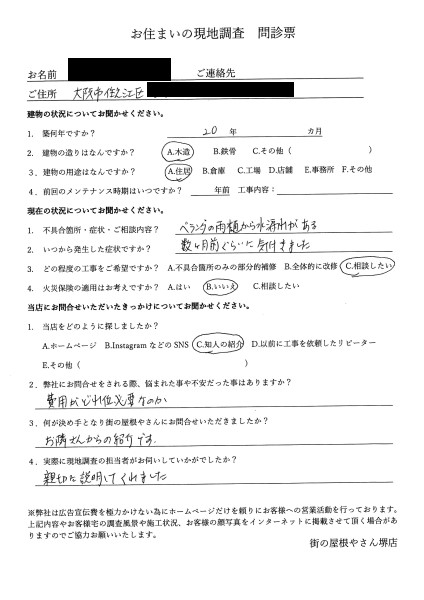 お住まいの現地調査　問診票
お名前　　ご連絡先
ご住所　大阪市住之江区
建物の状況についてお聞かせください。
1. 築何年ですか？　20 年　　カ月
2. 建物の造りはなんですか？　A.木造　B.鉄骨　C.その他（　　）
3. 建物の用途はなんですか？　A.住居　B.倉庫　C.工場　D.店舗　E.事務所　F.その他
4. 前回のメンテナンス時期はいつですか？　　年前　工事内容：
現在の状況についてお聞かせください。
1. 不具合箇所・症状・ご相談内容？　ベランダの雨樋から水漏れがある
2. いつから発生した症状ですか？　数ヶ月前ぐらいに気付きました
3. どの程度の工事をご希望ですか？　A.不具合箇所のみの部分的補修　B.全体的に改修　C.相談したい
4. 火災保険の適用はお考えですか？　A.はい　B.いいえ　C.相談したい
当店にお問合せいただいたきっかけについてお聞かせください。
1. 当店をどのように探しましたか？
A.ホームページ　B.Instagram などの SNS　C.知人の紹介　D.以前に工事を依頼したリピーター
E.その他（　　）
2．弊社にお問合せをされる際、悩まれた事や不安だった事はありますか？
費用がどれ位必要なのか
3．何が決め手となり街の屋根やさんにお問合せいただきましたか？
お隣さんからの紹介です.
4．実際に現地調査の担当者がお伺いしていかがでしたか？
親切に説明してくれました
※弊社は広告宣伝費を極力かけない為にホームページだけを頼りにお客様への営業活動を行っております。
上記内容やお客様宅の調査風景や施工状況、お客様の顔写真をインターネットに掲載させて頂く場合があ
りますのでご協力お願いいたします。
街の屋根やさん堺店